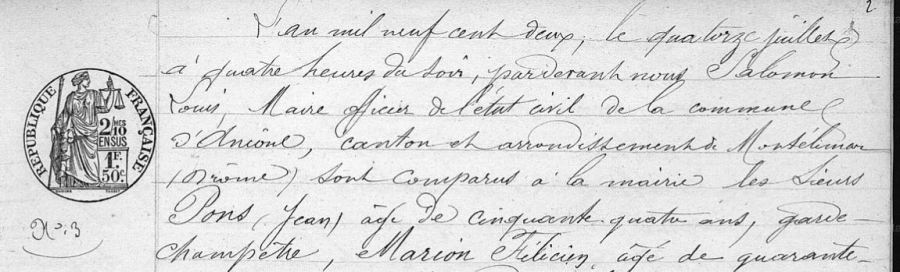 2
L'an mil neuf cent deux, le quatorze juillet
à quatre heures du soir, pardevant nous Salomon
Louis, Maire officier de l'état civil de la commune
d'Ancône, canton et arrondissement de Montélimar
(Drôme) sont comparus à la mairie les sieurs
Pons (Jean) âgé de cinquante-quatre ans, garde-
champêtre, Marion Félicien, âgé de quarante-
RÉPUBLIQUE FRANÇAISE
2/10
EN SUS
1F.
50c.
No: 3